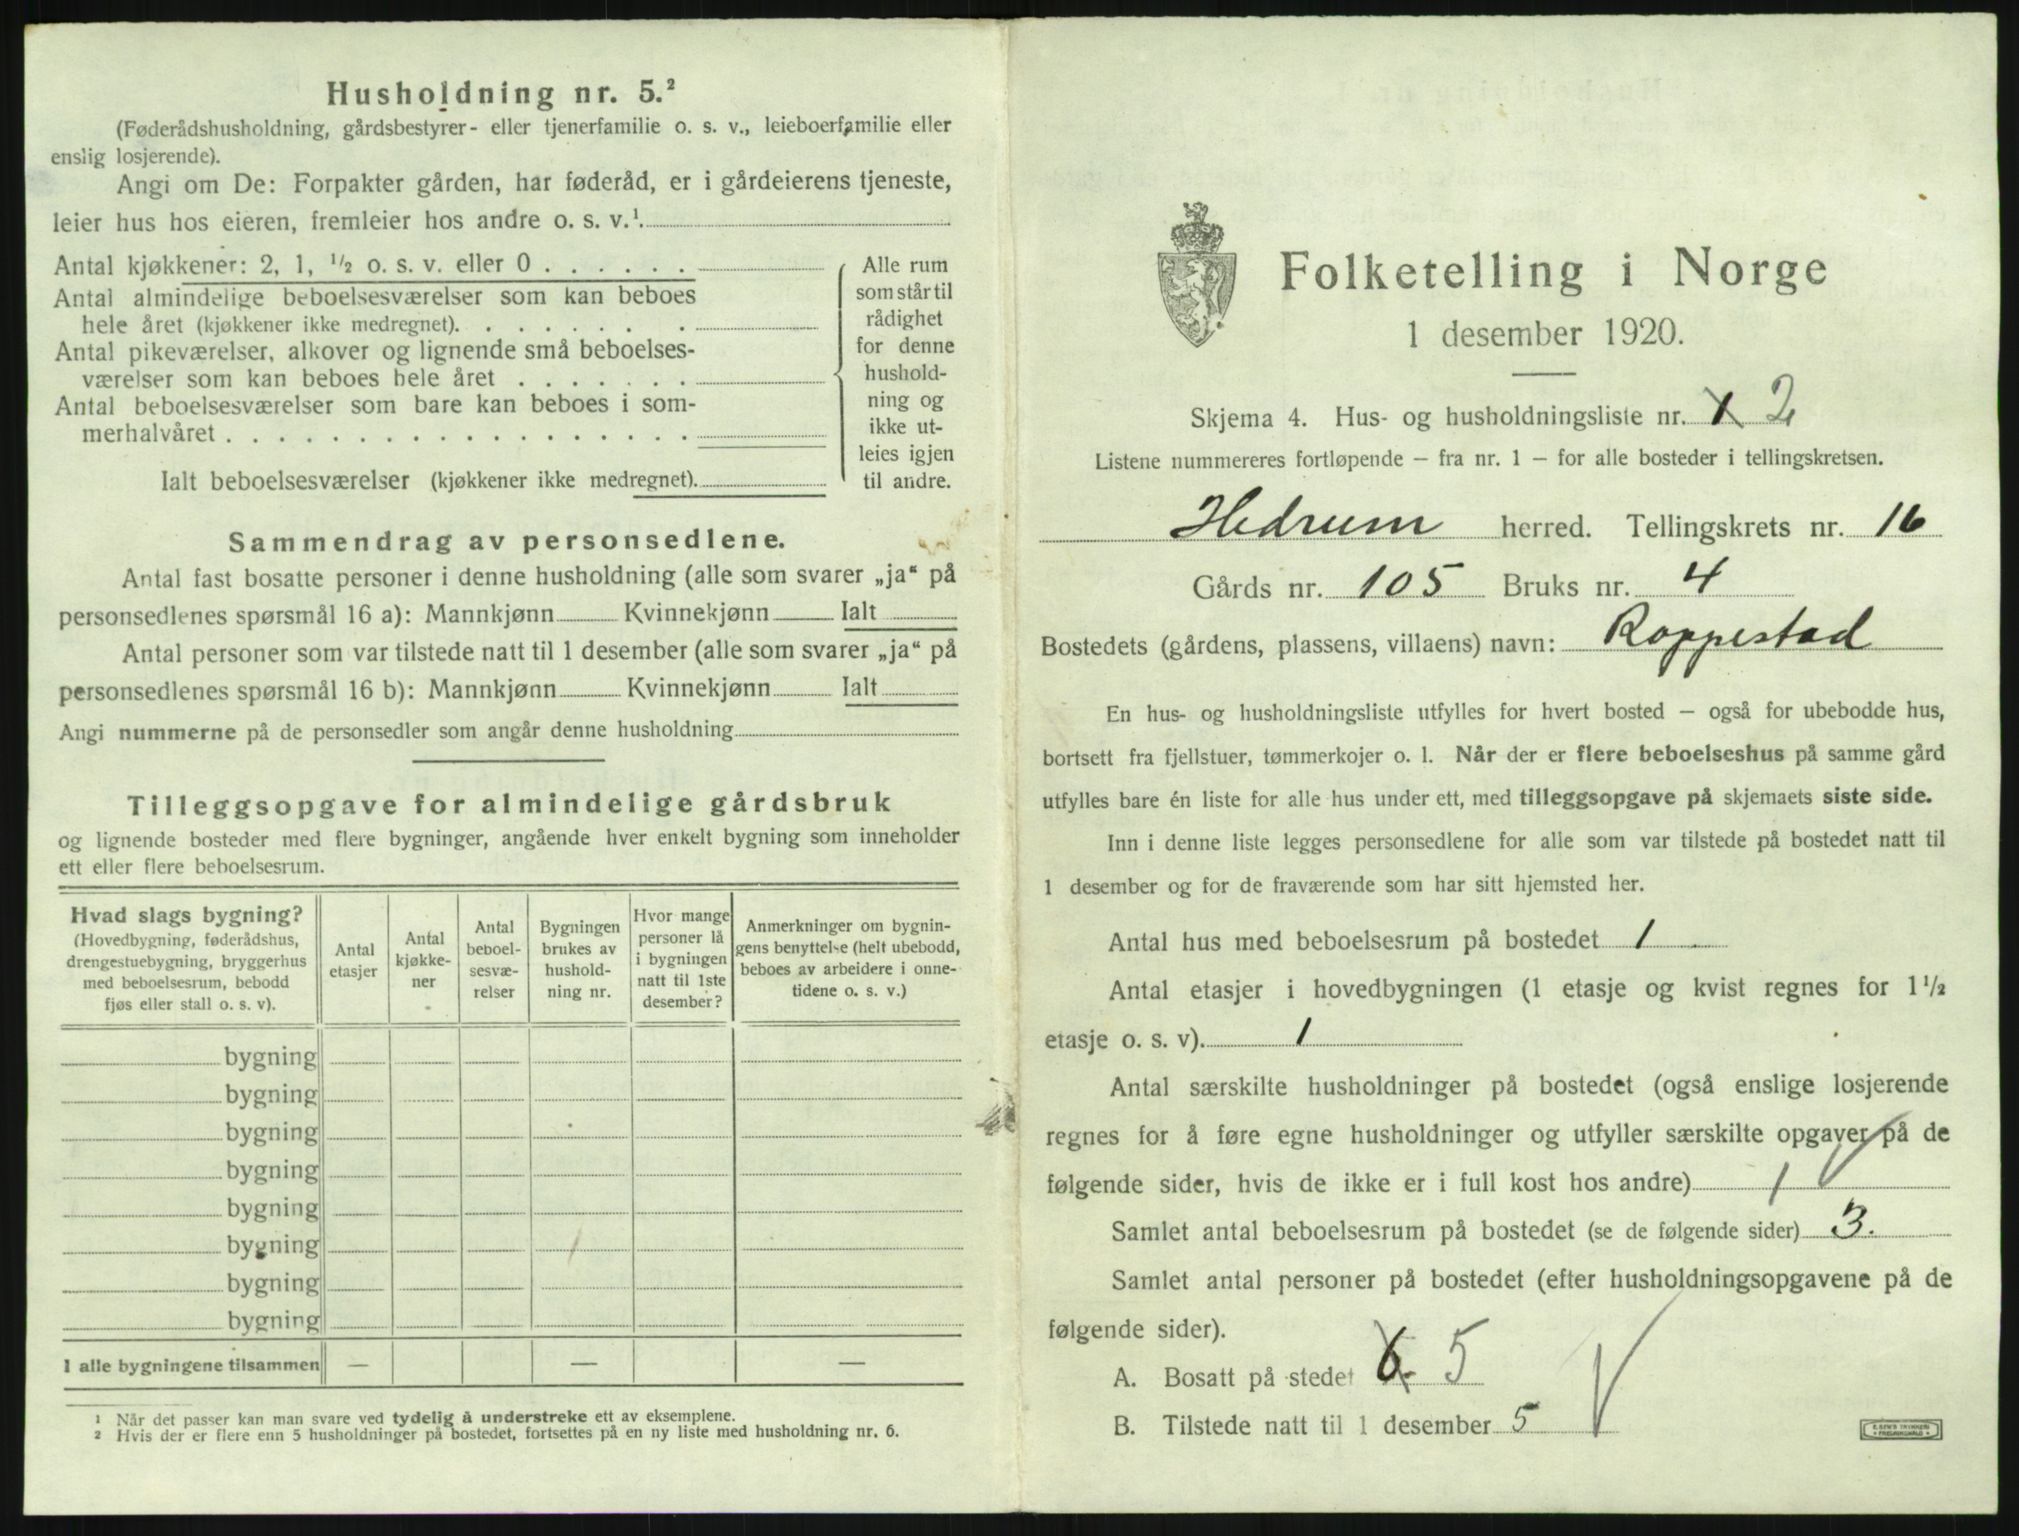 Husholdning nr. 5.²
(Føderådshusholdning, gårdsbestyrer- eller tjenerfamilie o. s. v., leieboerfamilie eller
enslig losjerende).
Angi om De: Forpakter gården, har føderåd, er i gårdeierens tjeneste,
leier hus hos eieren, fremleier hos andre o. s. v.¹.
Antal kjøkkener: 2, 1, ½ o. s. v. eller 0 . . . . . .
Antal almindelige beboelsesværelser som kan beboes
hele året (kjøkkener ikke medregnet). . . . . . . .
Antal pikeværelser, alkover og lignende små beboelses-
værelser som kan beboes hele året . . . . . . .
Antal beboelsesværelser som bare kan beboes i som-
merhalvåret . . . . . . . . . . . . . . . . . .
Ialt beboelsesværelser (kjøkkener ikke medregnet).
Alle rum
som står til
rådighet
for denne
hushold-
ning og
ikke ut-
leies igjen
til andre.
Sammendrag av personsedlene.
Antal fast bosatte personer i denne husholdning (alle som svarer „ja“ på
personsedlenes spørsmål 16 a): Mannkjønn Kvinnekjønn Ialt
Antal personer som var tilstede natt til 1 desember (alle som svarer „ja“ på
personsedlenes spørsmål 16 b): Mannkjønn Kvinnekjønn Ialt
Angi nummerne på de personsedler som angår denne husholdning
Tilleggsopgave for almindelige gårdsbruk
og lignende bosteder med flere bygninger, angående hver enkelt bygning som inneholder
ett eller flere beboelsesrum.
Hvad slags bygning?
(Hovedbygning, føderådshus,
drengestuebygning, bryggerhus
med beboelsesrum, bebodd
fjøs eller stall o. s. v).
Antal
etasjer
Antal
kjøkke-
ner
Antal
beboel-
sesvæ-
relser
Bygningen
brukes av
hushold-
ning nr.
Hvor mange
personer lå
i bygningen
natt til 1ste
desember?
Anmerkninger om bygnin-
gens benyttelse (helt ubebodd,
beboes av arbeidere i onne-
tidene o. s. v.)
bygning
bygning
bygning
bygning
bygning
bygning
bygning
bygning
I alle bygningene tilsammen — — —
¹ Når det passer kan man svare ved tydelig å understreke ett av eksemplene.
² Hvis der er flere enn 5 husholdninger på bostedet, fortsettes på en ny liste med husholdning nr. 6.
Folketelling i Norge
1 desember 1920.
Skjema 4. Hus- og husholdningsliste nr. 1 2
Listene nummereres fortløpende — fra nr. 1 — for alle bosteder i tellingskretsen.
Hedrum herred. Tellingskrets nr. 16
Gårds nr. 105 Bruks nr. 4
Bostedets (gårdens, plassens, villaens) navn: Roppestad
En hus- og husholdningsliste utfylles for hvert bosted — også for ubebodde hus,
bortsett fra fjellstuer, tømmerkojer o. l. Når der er flere beboelseshus på samme gård
utfylles bare én liste for alle hus under ett, med tilleggsopgave på skjemaets siste side.
Inn i denne liste legges personsedlene for alle som var tilstede på bostedet natt til
1 desember og for de fraværende som har sitt hjemsted her.
Antal hus med beboelsesrum på bostedet 1
Antal etasjer i hovedbygningen (1 etasje og kvist regnes for 1½
etasje o. s. v). 1
Antal særskilte husholdninger på bostedet (også enslige losjerende
regnes for å føre egne husholdninger og utfyller særskilte opgaver på de
følgende sider, hvis de ikke er i full kost hos andre) 1
Samlet antal beboelsesrum på bostedet (se de følgende sider) 3.
Samlet antal personer på bostedet (efter husholdningsopgavene på de
følgende sider).
A. Bosatt på stedet 6. 5
B. Tilstede natt til 1 desember 5